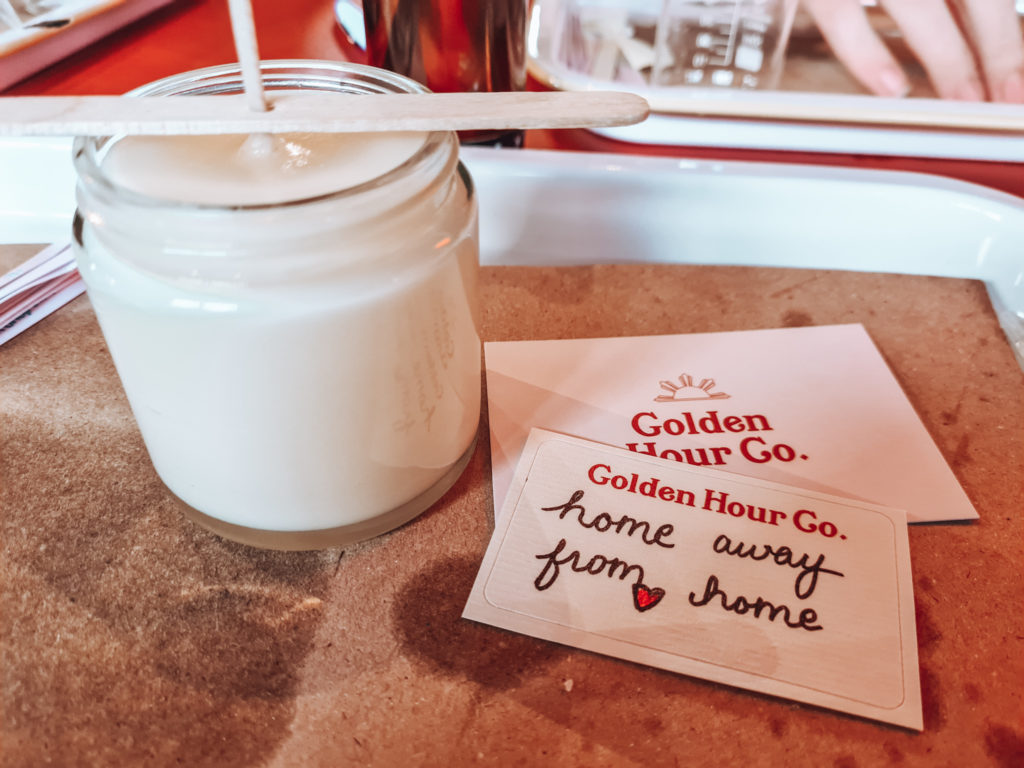 Golden
Hour Co.
Golden Hour Co.
home away
from home